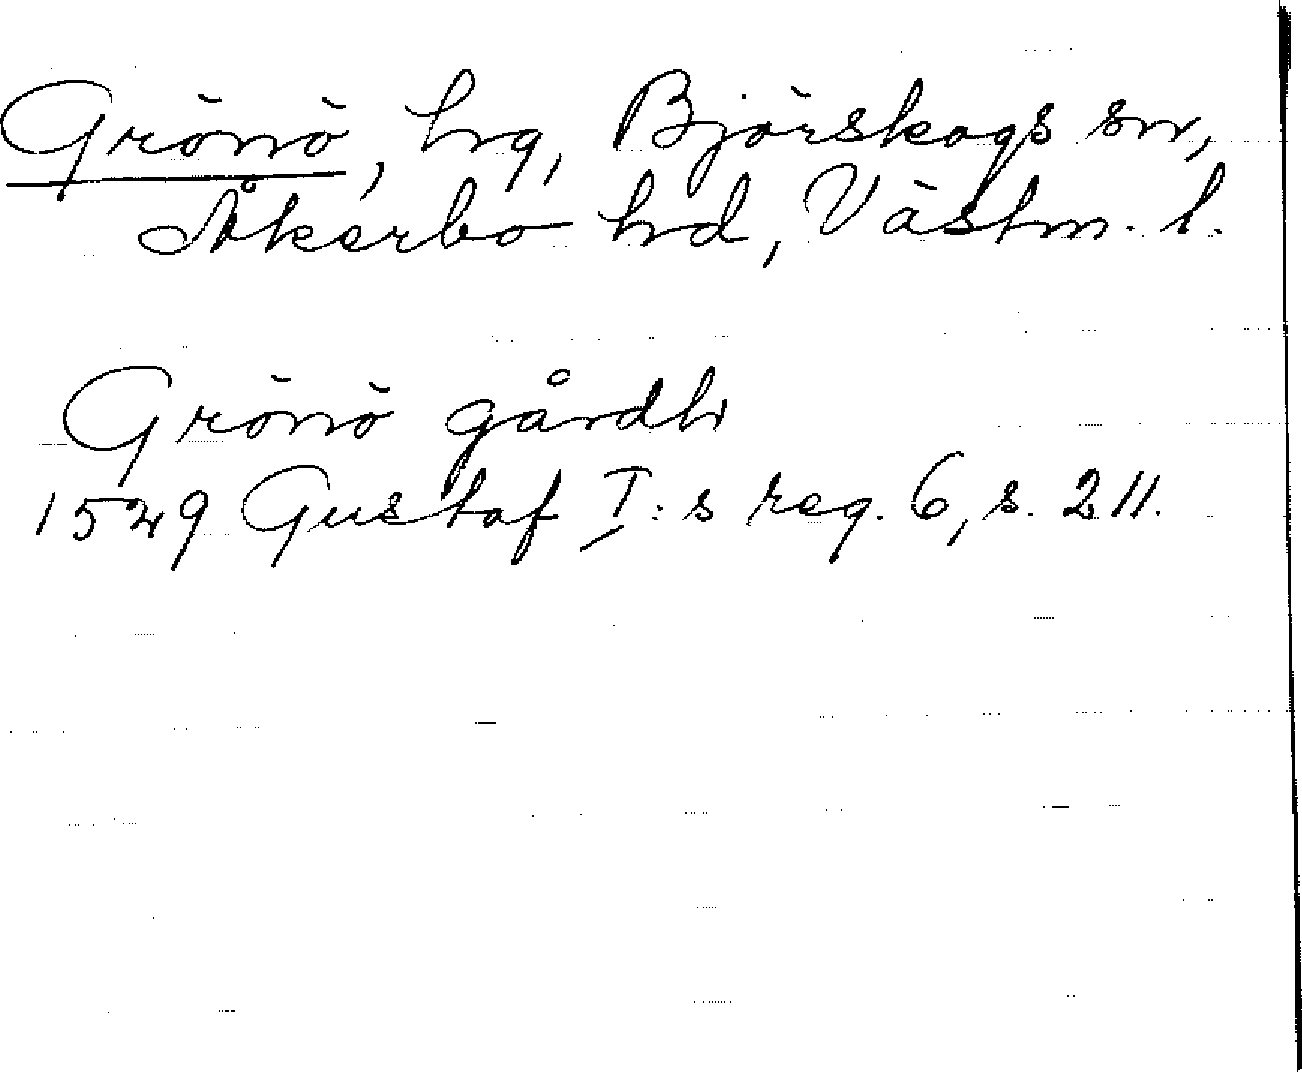 Grönö, hg, Björskogs sn,
Åkerbo hd, Västm. l.
Grönö gårdh
1529 Gustaf I:s reg. 6, s. 211.